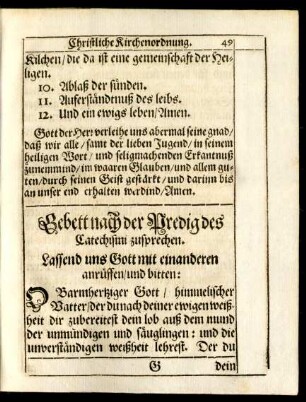 Christliche Kirchenordnung. 49
Kilchen/ die da ist eine gemeinschaft der Hei-
ligen.
10. Ablaß der sünden.
11. Auferständtnuß des leibs.
12. Und ein ewigs leben/ Amen.
Gott der Herr verleihe uns abermal seine gnad/
daß wir alle/ samt der lieben Jugend/ in seinem
heiligen Wort/ und seligmachenden Erkantnuß
zunemmind/ im waaren Glauben/ und allem gu-
ten/ durch seinen Geist gestärkt/ und darinn bis
an unser end erhalten werdind/ Amen.
Gebett nach der Predig des
Catechismi zusprechen.
Lassend uns Gott mit einanderen
anrüffen/ und bitten:
O Barmhertziger Gott/ himmelischer
Vatter/ der du nach deiner ewigen weiß-
heit dir zubereitest dein lob auß dem mund
der unmündigen und säuglingen: und die
unverständigen weißheit lehrest. Der du
G dein